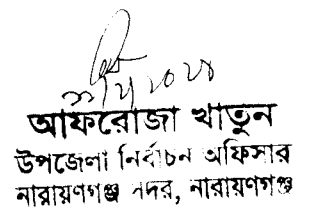 আফরোজা খাতুন
উপজেলা নির্বাচন অফিসার
নারায়ণগঞ্জ সদর, নারায়ণগঞ্জ